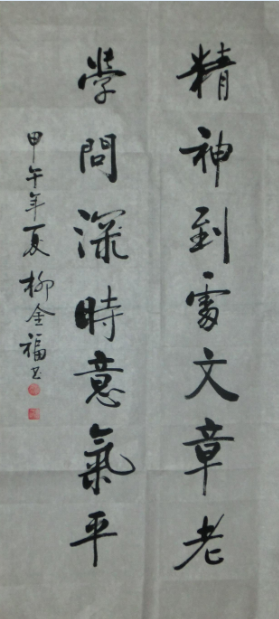 精神到處文章老
學問深時意氣平
甲午年夏柳金福书